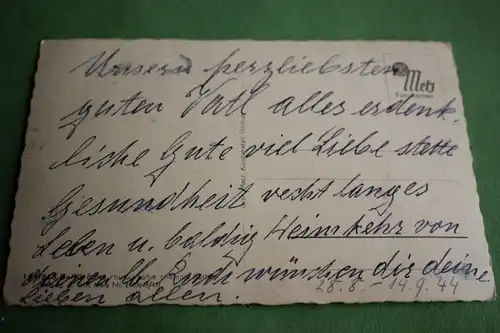 Unsern herzliebsten
guten Vatl alles erdenk-
liche Gute viel Liebe stette
Gesundheit recht langes
Leben u. baldig Heimkehr von
wünschen dir deine
Lieben allen. 28.8. - 14.9.44
Metz